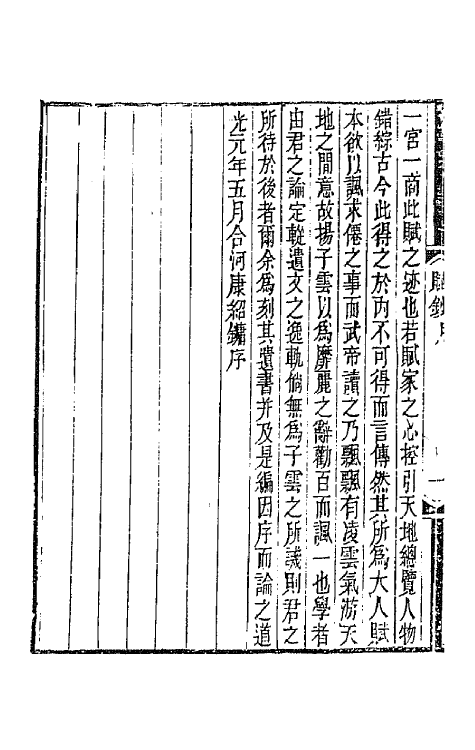 一宮一商此賦之迹也若賦家之心控引天地總覽人物
錯綜古今此得之於内不可得而言傳然其所為大人賦
本欲以諷求僊之事而武帝讀之乃飄飄有凌雲氣游天
地之間意故揚子雲以為靡麗之辭勸百而諷一也學者
由君之論定蹤遺文之逸軌倘無為子雲之所譏則君之
所待於後者爾余為刻其遺書并及是編因序而論之道
光元年五月合河康紹鏞序
賦鈔
一